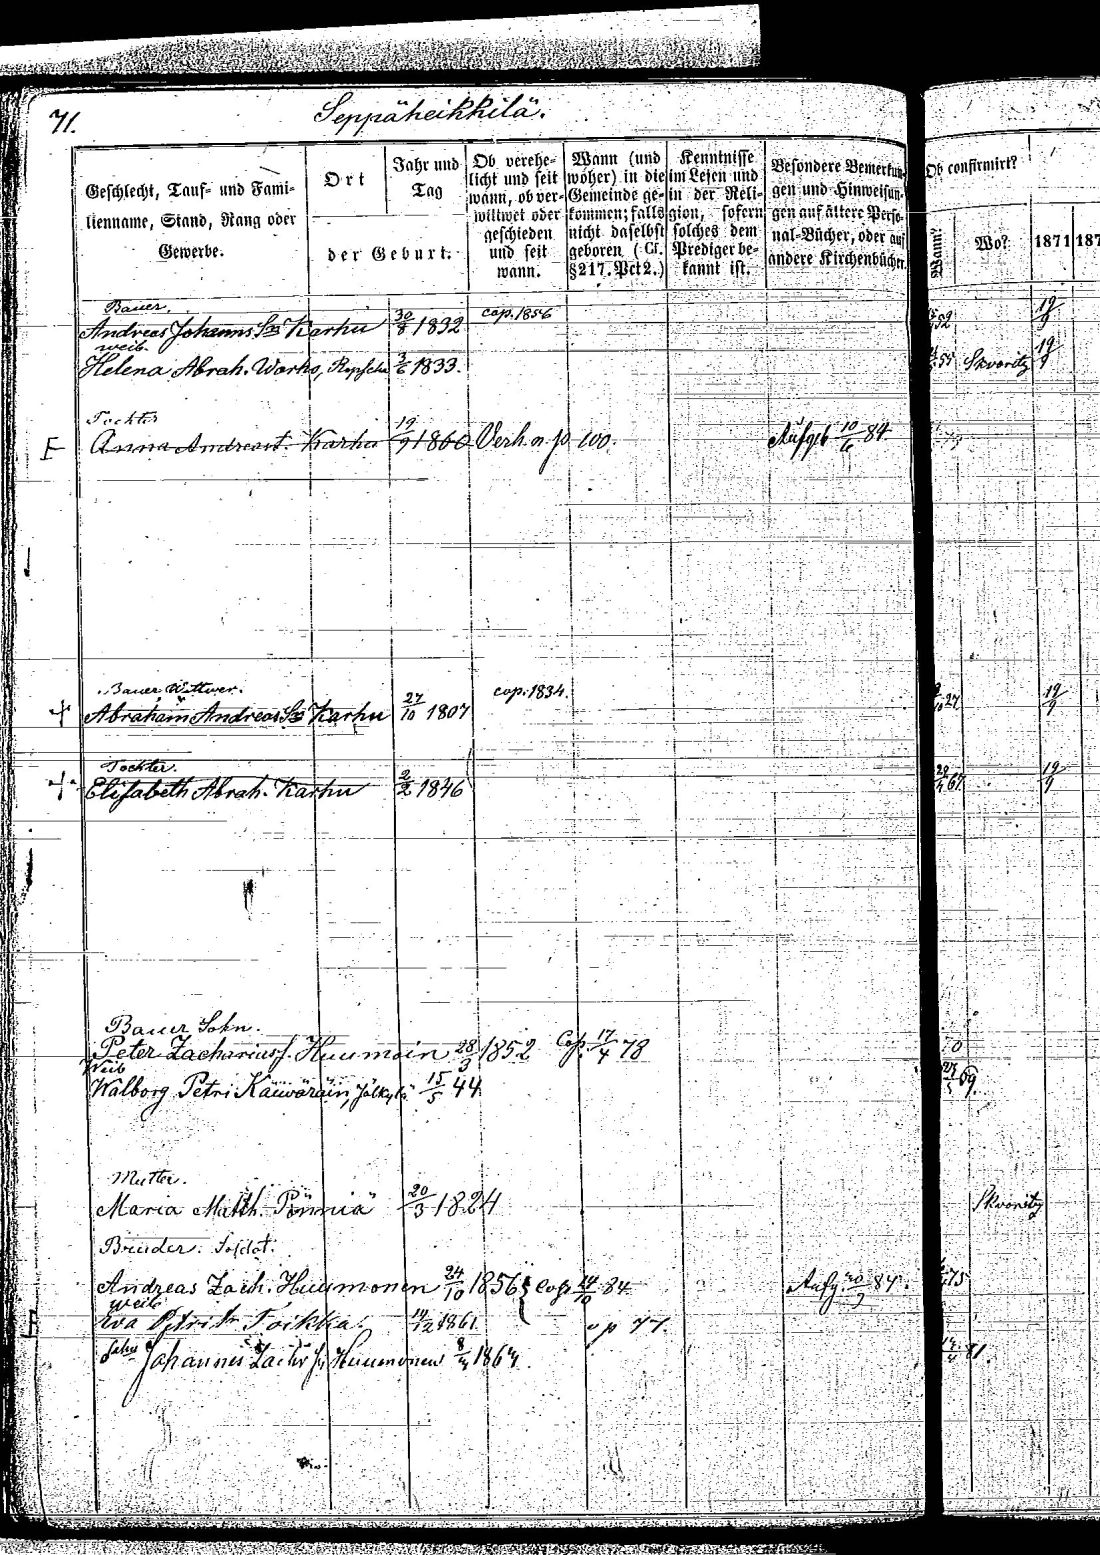 71.
Seppäheikkilä.
Geschlecht, Tauf- und Fami-
lienname, Stand, Rang oder
Gewerbe.
Ort
der Geburt.
Jahr und
Tag
Ob verehe-
licht und seit
wann, ob ver-
wittwet oder
geschieden
und seit
wann.
Wann (und
woher) in die
Gemeinde ge-
kommen; falls
nicht daselbst
geboren (Cf.
§ 217. Pct 2.)
Kenntnisse
im Lesen und
in der Reli-
gion, sofern
solches dem
Prediger be-
kannt ist.
Besondere Bemerkun-
gen und Hinweisun-
gen auf ältere Perso-
nal-Bücher, oder auf
andere Kirchenbücher.
Ob confirmirt?
Wann?
Wo?
1871
187
Bauer.
Andreas Johanns Karhu 30/8 1832 cop. 1856 19/9
Weib.
Helena Abrah. Warho, Ropscha 3/6 1833. Skvoritz 19/9
Tochter
Anna Andreast. Karhu 19/9 1860 Verh. n. p. 100. Aufgeb 10/6 84.
Bauer Wittwer.
Abraham Andreas Karhu 27/10 1807 cop. 1834. 27 19/9
Tochter.
Elisabeth Abrah. Karhu 2/2 1846 67. 19/9
Bauer Sohn.
Peter Zachariasf. Huumoin 28/3 1852 Cop. 17/4 78
Weib
Walborg Petri Käiwäräin, Jälkylä 15/5 44. 69.
Mutter.
Maria Matth. Pönniä 20/3 1824 Skvoritz
Bruder. Soldat.
Andreas Zach. Huumonen 24/10 1856 Cop 14/10 84 Aufg. 84. 75
Weib
Eva Petri Toikka. 14/12 1861. p 77.
Sohn Johannes Zachr Huumonen 1864. 81.